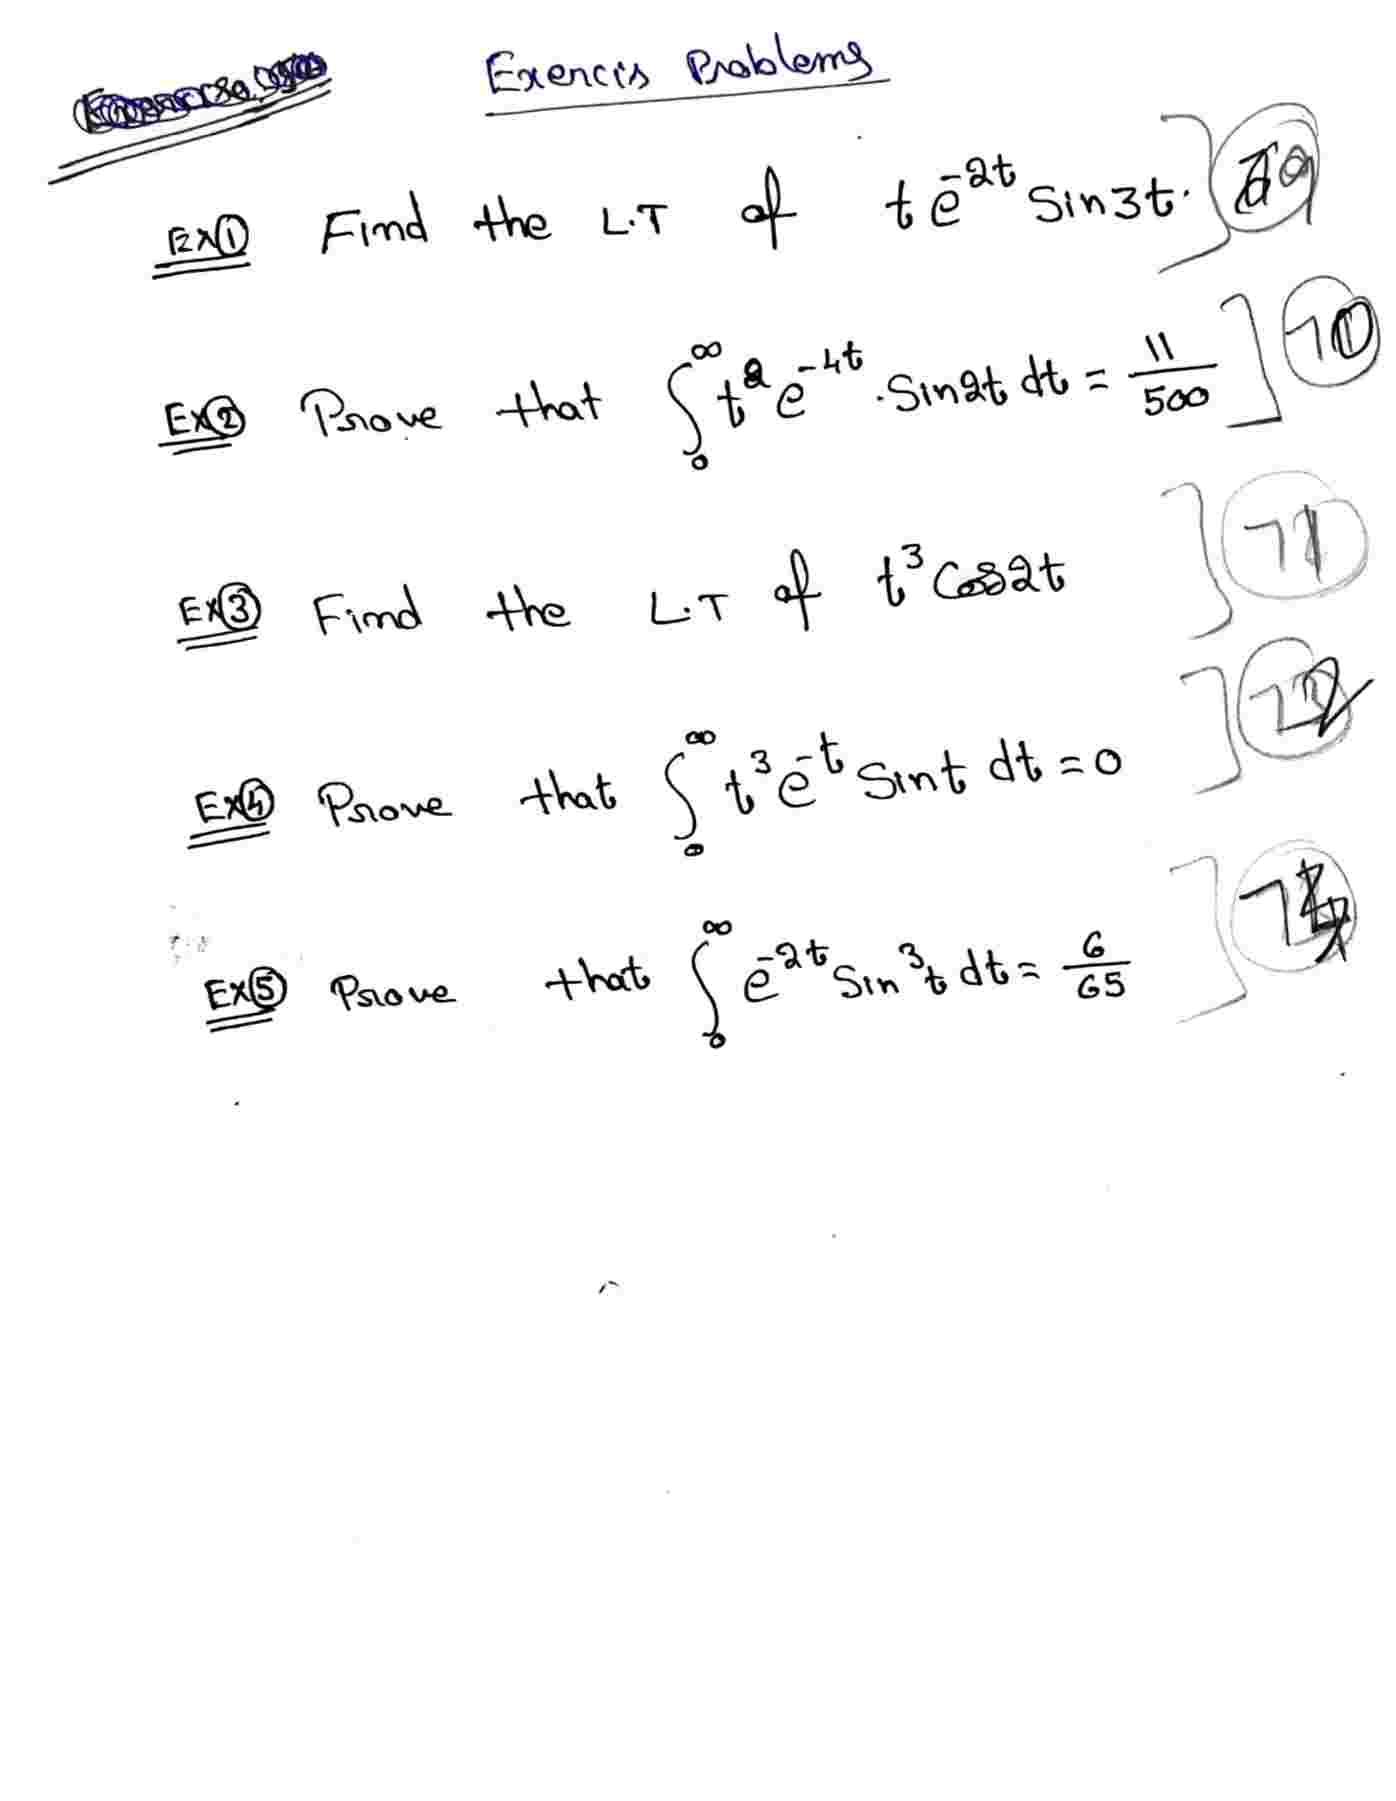 Exencis Problems
Ex① Find the L.T of t e^{-2t} Sin3t. ] 69
Ex② Prove that ∫_0^∞ t^2 e^{-4t} . Sin2t dt = 11/500 ] 70
Ex③ Find the L.T of t^3 Cos2t ] 71
Ex④ Prove that ∫_0^∞ t^3 e^{-t} Sint dt = 0 ] 72
Ex⑤ Prove that ∫_0^∞ e^{-2t} Sin^3 t dt = 6/65 ]